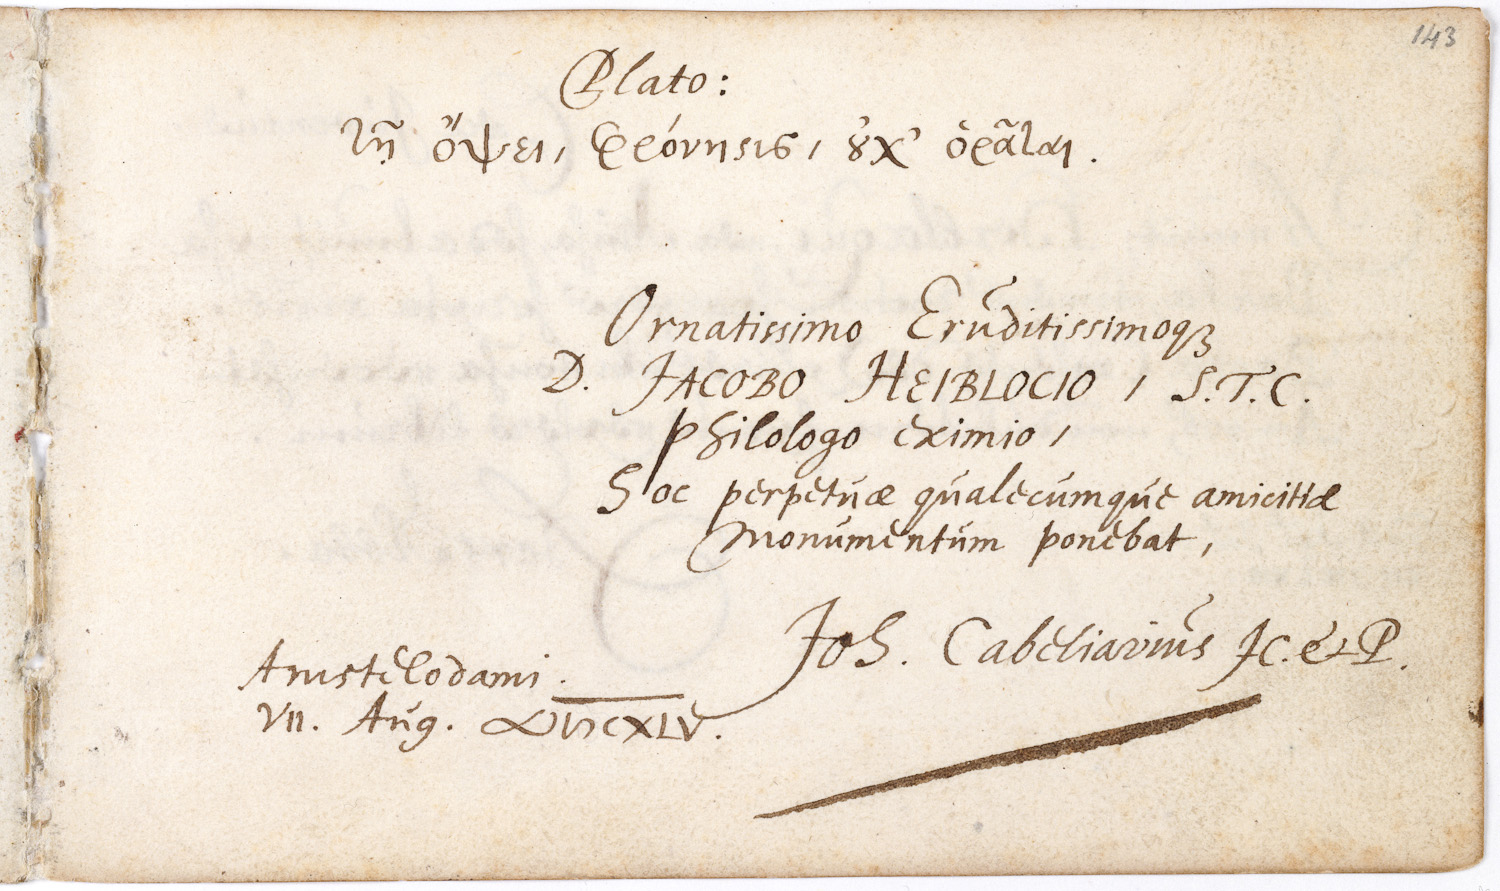 143
Plato:
τῇ ὄψει, φρόνησις, ȣ̓χ' ὁρᾶται.
Ornatissimo Erŭditissimoqꝫ
D. JACOBO HEIBLOCIO, S.T.C.
philologo eximio,
Hoc perpetŭæ qŭalecŭmqŭe amicitiæ
monŭmentŭm ponebat,
Joh. Cabeliaviŭs JC. & P.
Amstelodami.
VII. Aŭg.